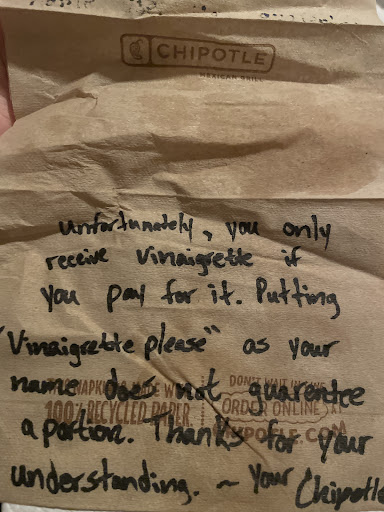 CHIPOTLE
MEXICAN GRILL
Unfortunately, you only
receive Vinaigrette if
you pay for it. Putting
"Vinaigrette please" as your
name does not guarentee
a portion. Thanks for your
understanding. ~ Your Chipotle
100% RECYCLED PAPER
DON'T WAIT IN LINE
ORDER ONLINE